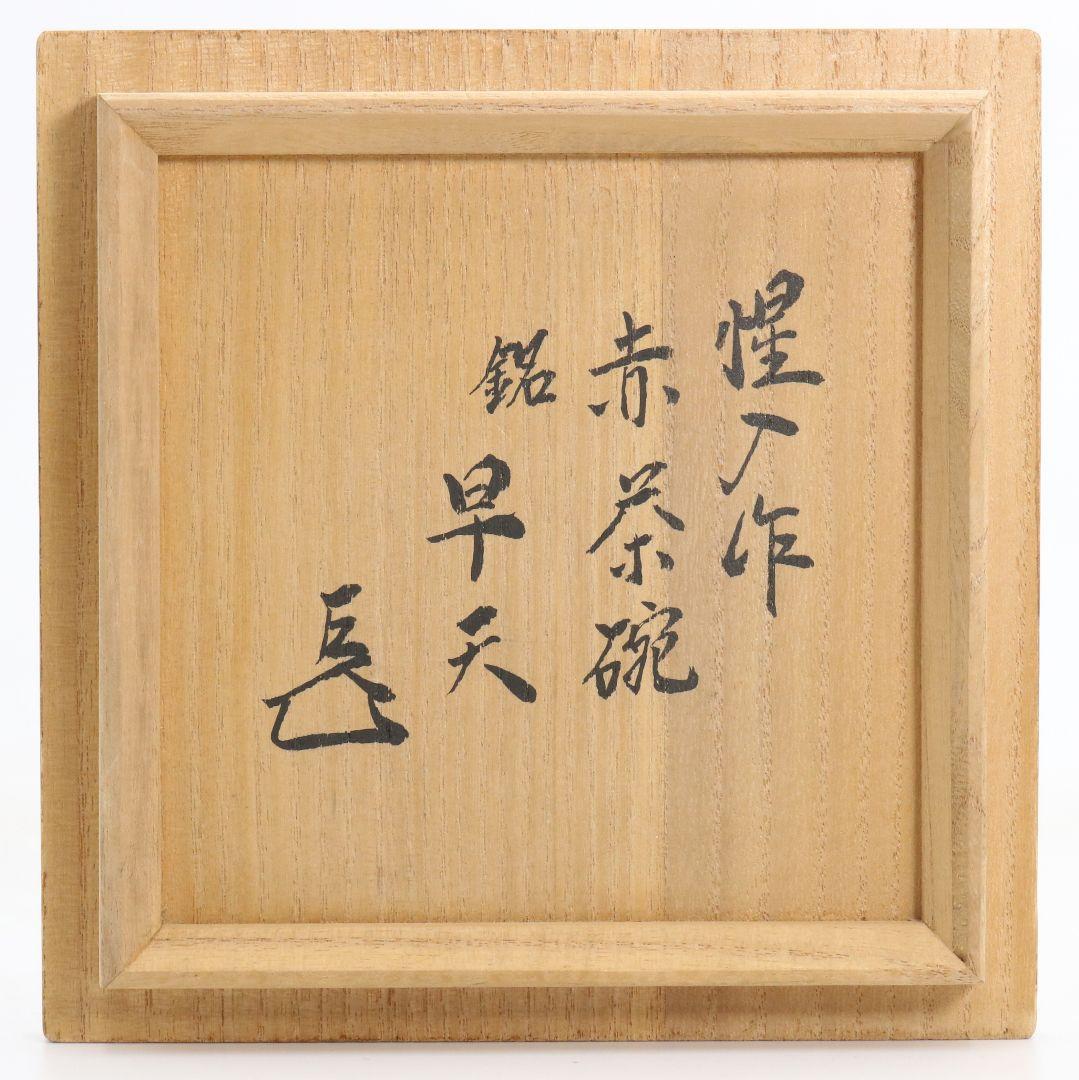 惺入作
赤茶碗
銘 早天